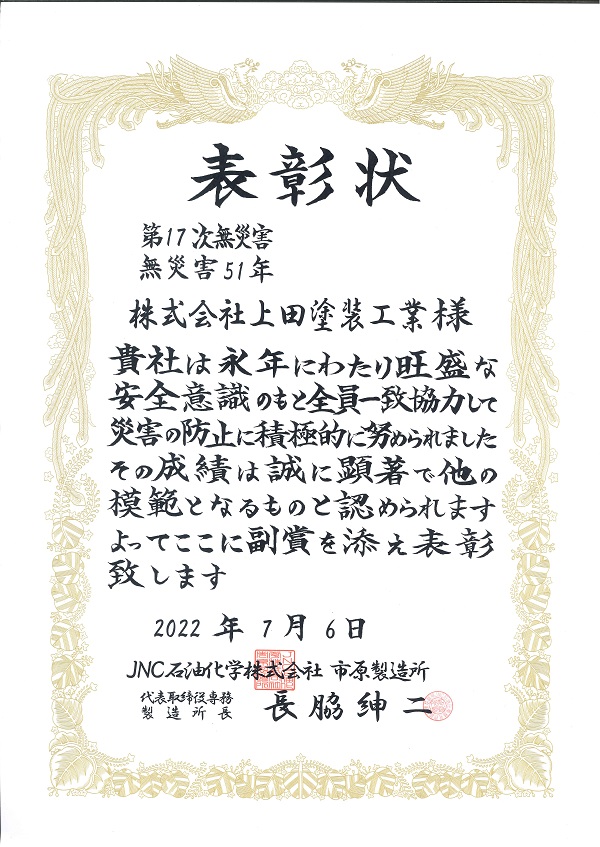 表彰状
第17次無災害
無災害51年
株式会社上田塗装工業様
貴社は永年にわたり旺盛な
安全意識のもと全員一致協力して
災害の防止に積極的に努められました
その成績は誠に顕著で他の
模範となるものと認められます
よってここに副賞を添え表彰
致します
2022年7月6日
JNC石油化学株式会社 市原製造所
代表取締役専務
製造所長
長脇紳二